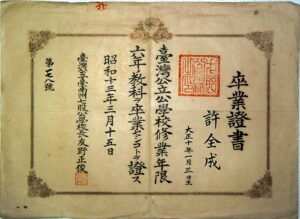 卒業證書
許全成
大正十年一月三日生
臺灣公立公學校修業年限
六年ノ教科ヲ卒業セシコトヲ證ス
昭和十三年三月十五日
臺灣公立臺南州七股公學校長友野正俊
第一七八號